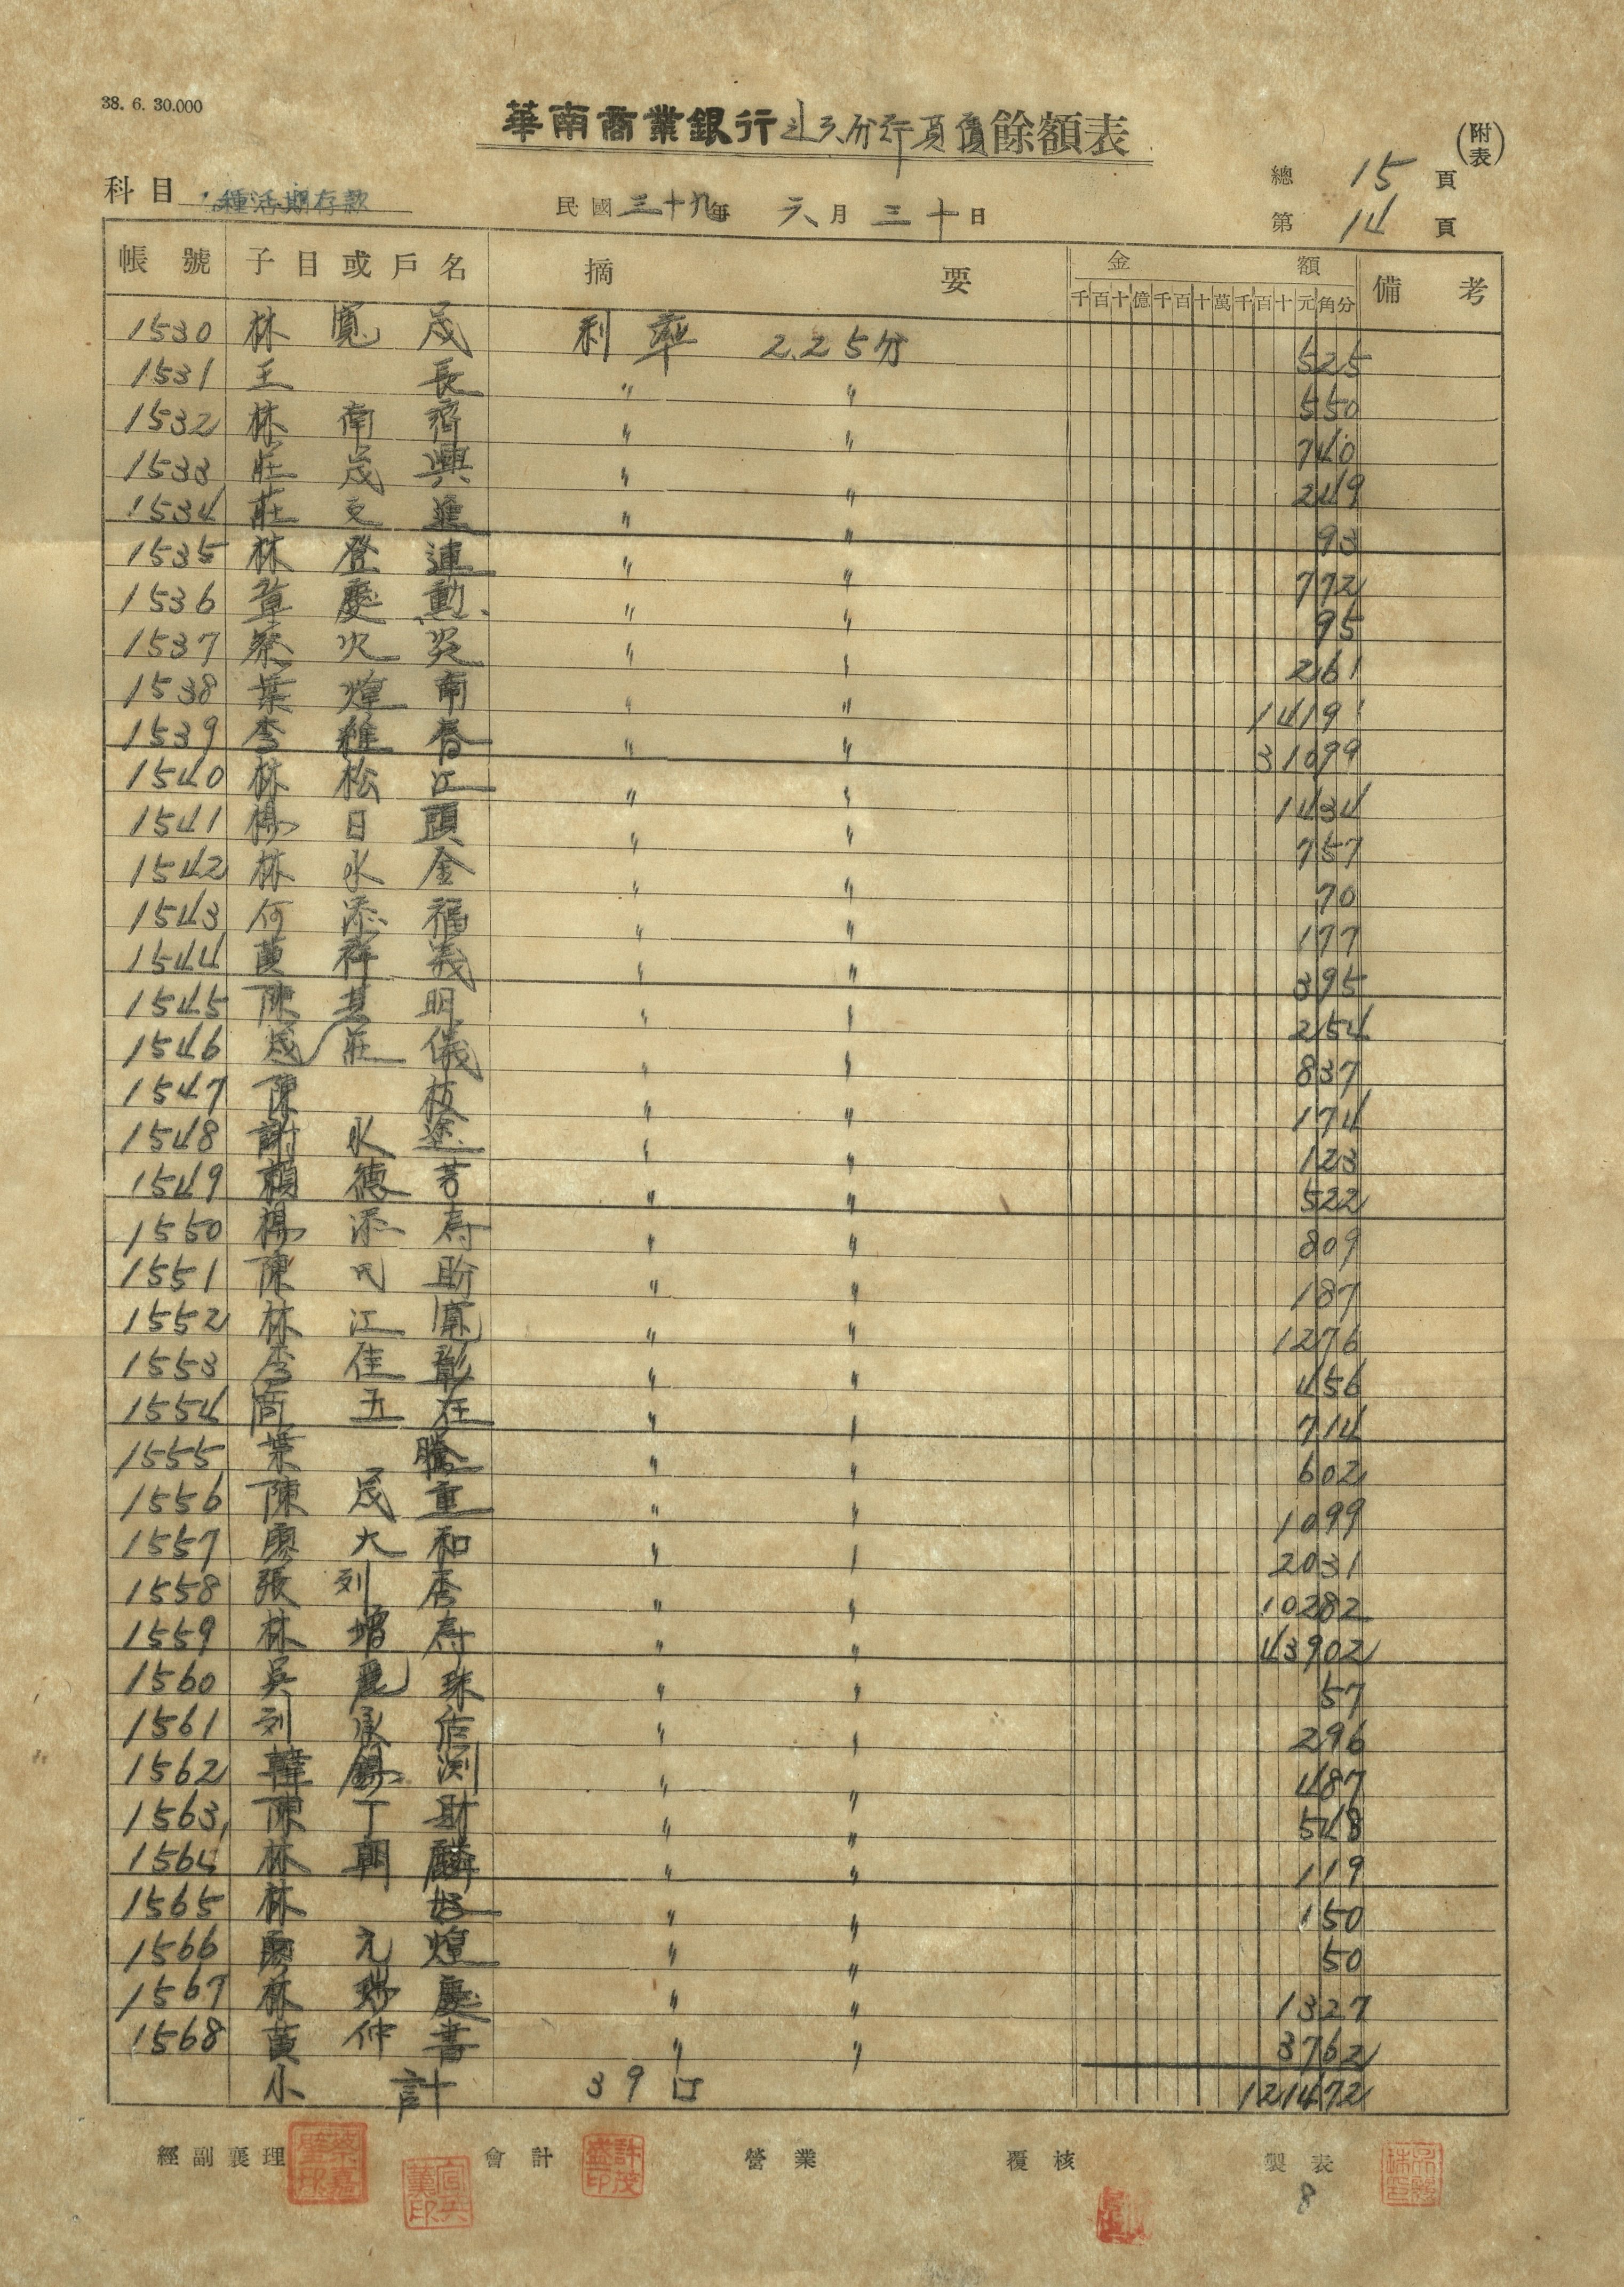 38. 6. 30.000
華南商業銀行 分行負債餘額表
(附表)
總 15 頁
科目 種活期存款
民國三十九年 六月三十日
第 14 頁
帳號 子目或戶名 摘要 金額 備考
千百十億千百十萬千百十元角分
1530 林寬茂 利率 2.25分 525
1531 王長 〃 〃 550
1532 林南齊 〃 〃 740
1533 莊茂興 〃 〃 249
1534 莊文進 〃 〃 93
1535 林登連 〃 〃 772
1536 章慶勳 〃 〃 95
1537 蔡火炎 〃 〃 261
1538 葉煌南 〃 〃 14191
1539 李維春 〃 〃 31099
1540 林松江 〃 〃 1434
1541 楊日頭 〃 〃 757
1542 林水金 〃 〃 70
1543 何添福 〃 〃 177
1544 黃祥義 〃 〃 395
1545 陳其明 〃 〃 254
1546 茂莊儀 〃 〃 837
1547 陳枝 〃 〃 174
1548 謝水塗 〃 〃 123
1549 賴德芳 〃 〃 522
1550 楊添壽 〃 〃 809
1551 陳氏盼 〃 〃 187
1552 林江寬 〃 〃 1276
1553 李佳彰 〃 〃 456
1554 简五在 〃 〃 714
1555 葉騰 〃 〃 602
1556 陳茂重 〃 〃 1099
1557 廖大和 〃 〃 2031
1558 張列居 〃 〃 10282
1559 林增壽 〃 〃 43902
1560 吳麗珠 〃 〃 57
1561 列承 〃 〃 296
1562 韓錫渕 〃 〃 487
1563 陳丁財 〃 〃 548
1564 林朝麟 〃 〃 119
1565 林好 〃 〃 150
1566 廖元煌 〃 〃 50
1567 林慶 〃 〃 1327
1568 黃仲書 〃 〃 3762
小計 39口 121472
經副襄理 會計 營業 覆核 製表
8